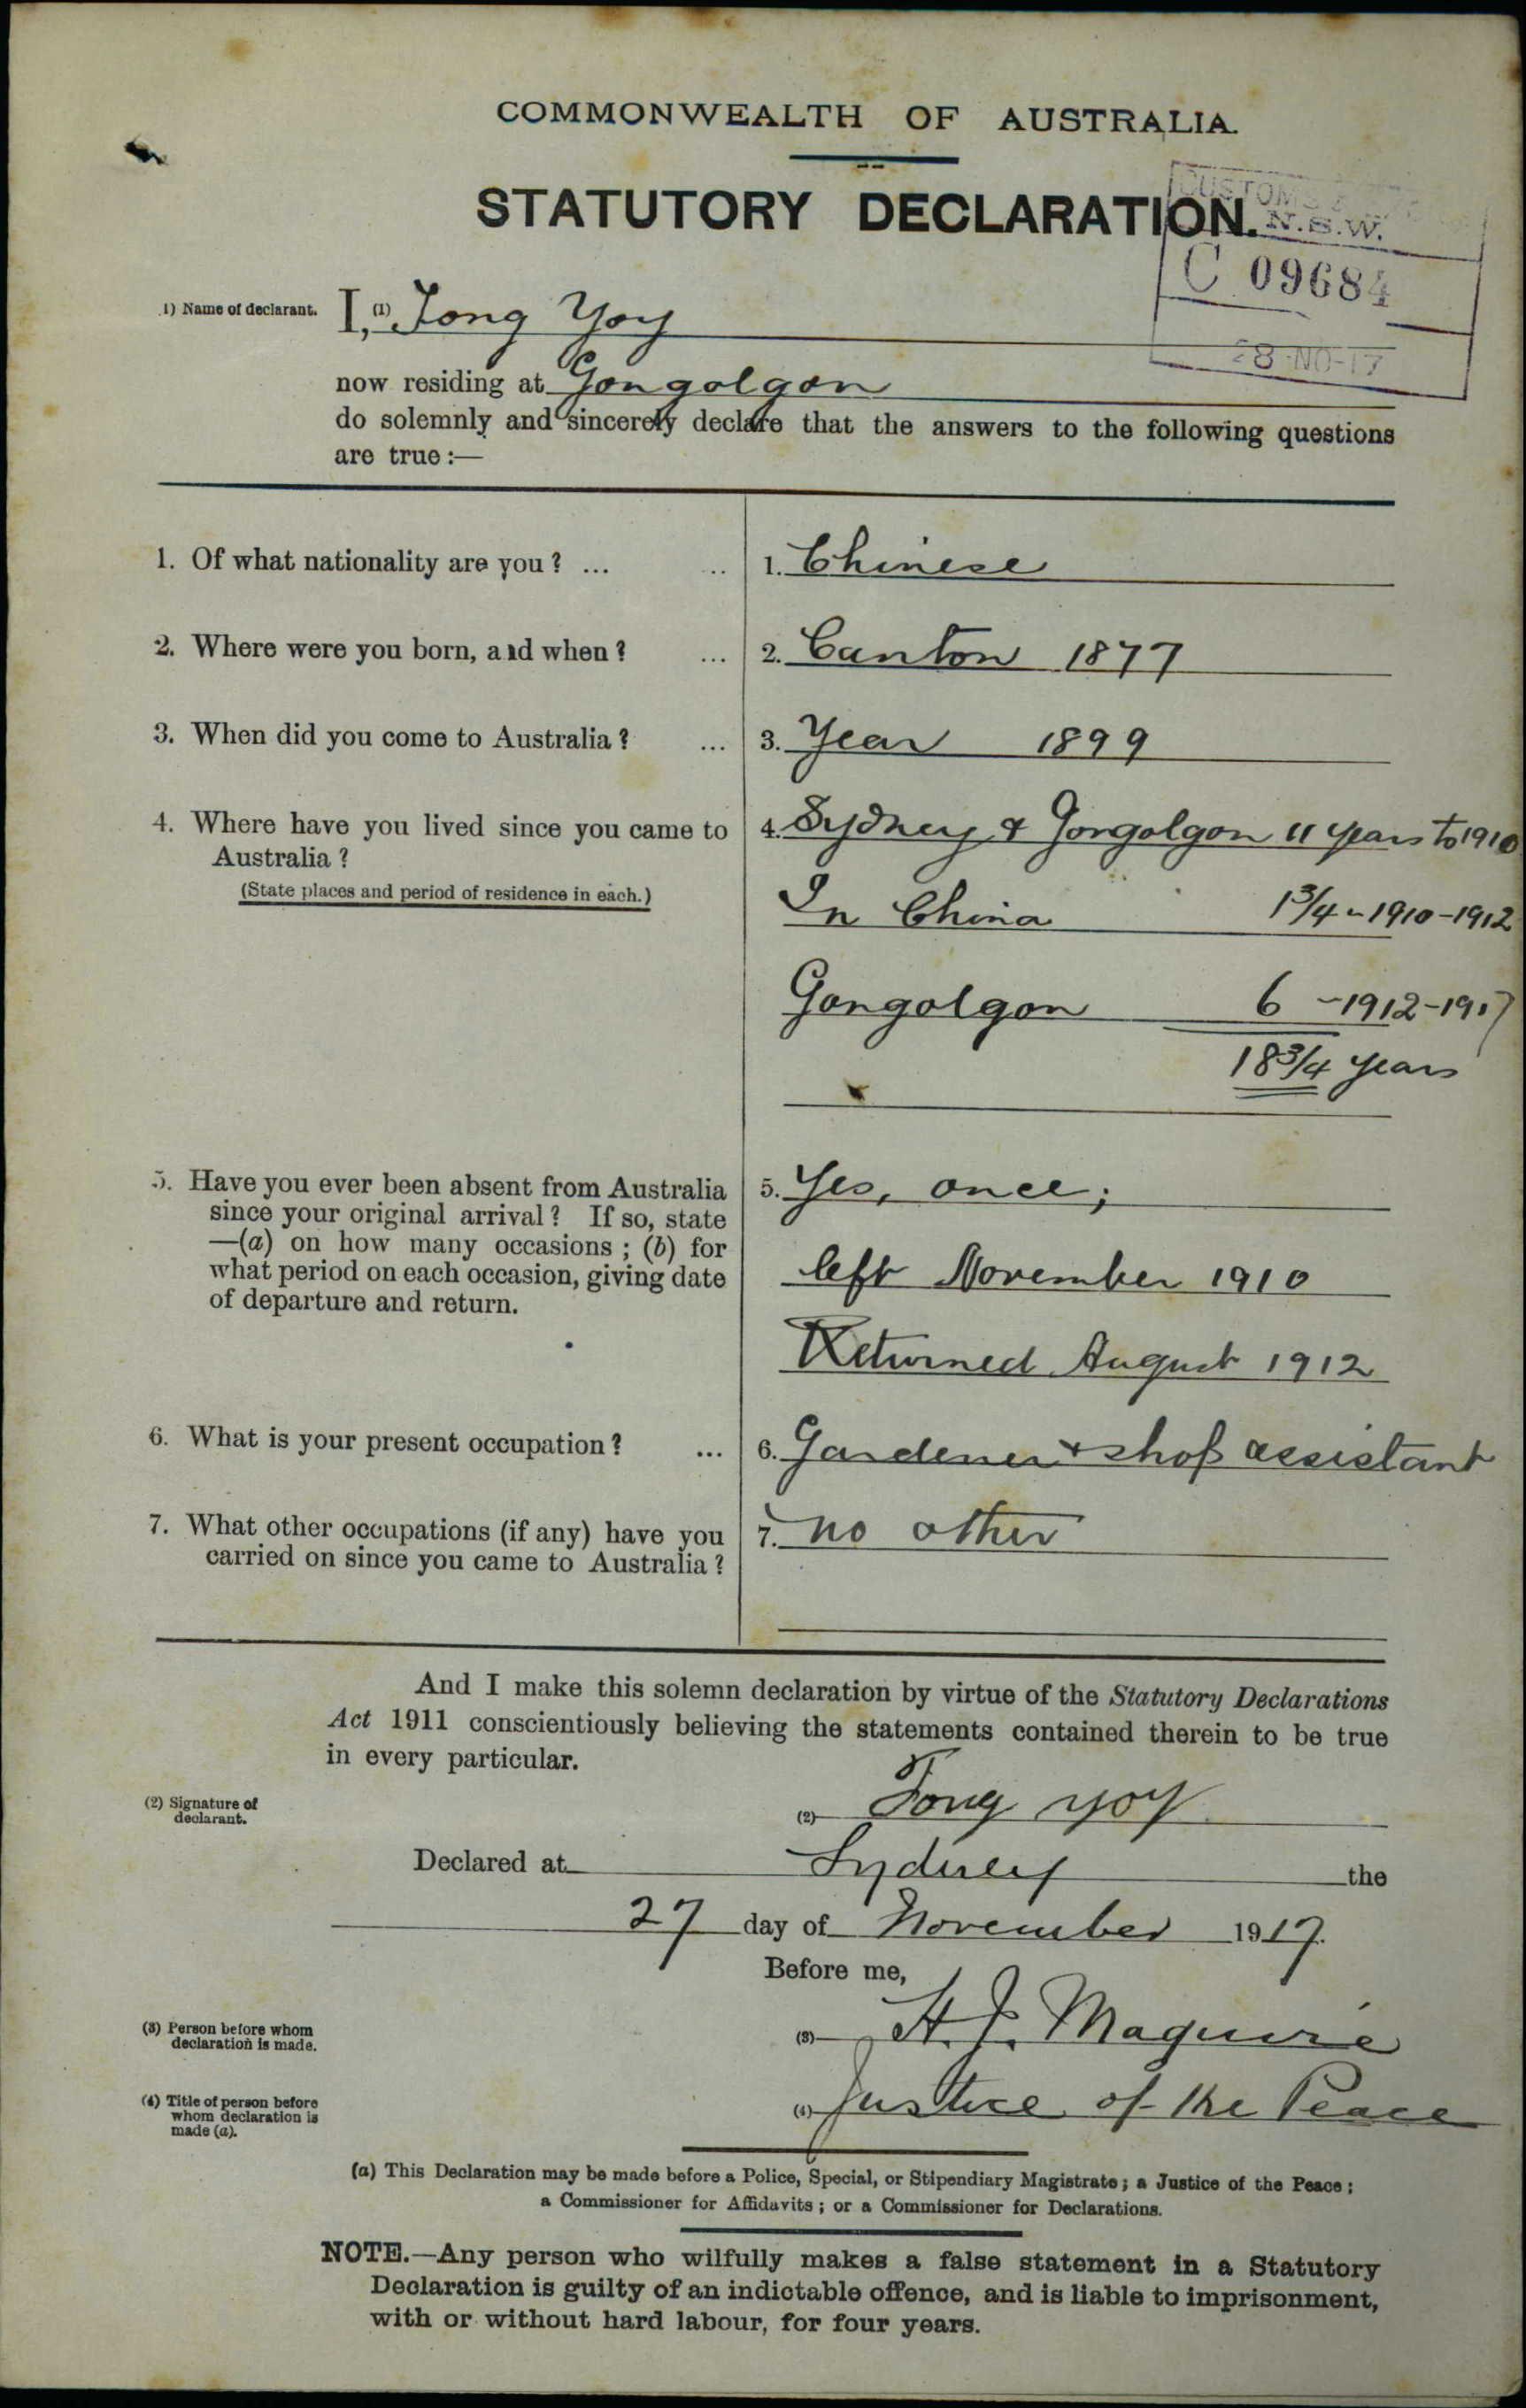 COMMONWEALTH OF AUSTRALIA.
STATUTORY DECLARATION.
CUSTOMS
N.S.W.
C 09684
28 NO-17
1) Name of declarant. I, (1) Fong Yoy
now residing at Gongolgon
do solemnly and sincerely declare that the answers to the following questions
are true:—
1. Of what nationality are you? ... .. 1. Chinese
2. Where were you born, and when? ... 2. Canton 1877
3. When did you come to Australia? ... 3. Year 1899
4. Where have you lived since you came to 4. Sydney & Gongolgon 11 years to 1910
Australia?
(State places and period of residence in each.)
In China 1 3/4 " 1910-1912
Gongolgon 6 - 1912-1917
18 3/4 years
5. Have you ever been absent from Australia 5. Yes, once;
since your original arrival? If so, state
—(a) on how many occasions; (b) for
what period on each occasion, giving date
of departure and return.
left November 1910
Returned August 1912
6. What is your present occupation? ... 6. Gardener & shop assistant
7. What other occupations (if any) have you 7. no other
carried on since you came to Australia?
And I make this solemn declaration by virtue of the Statutory Declarations
Act 1911 conscientiously believing the statements contained therein to be true
in every particular.
(2) Signature of
declarant.
(2) Fong yoy
Declared at Sydney the
27 day of November 1917.
Before me,
(3) Person before whom
declaration is made.
(3) H. J. Maguire
(4) Title of person before
whom declaration is
made (a).
(4) Justice of the Peace
(a) This Declaration may be made before a Police, Special, or Stipendiary Magistrate; a Justice of the Peace;
a Commissioner for Affidavits; or a Commissioner for Declarations.
NOTE.—Any person who wilfully makes a false statement in a Statutory
Declaration is guilty of an indictable offence, and is liable to imprisonment,
with or without hard labour, for four years.